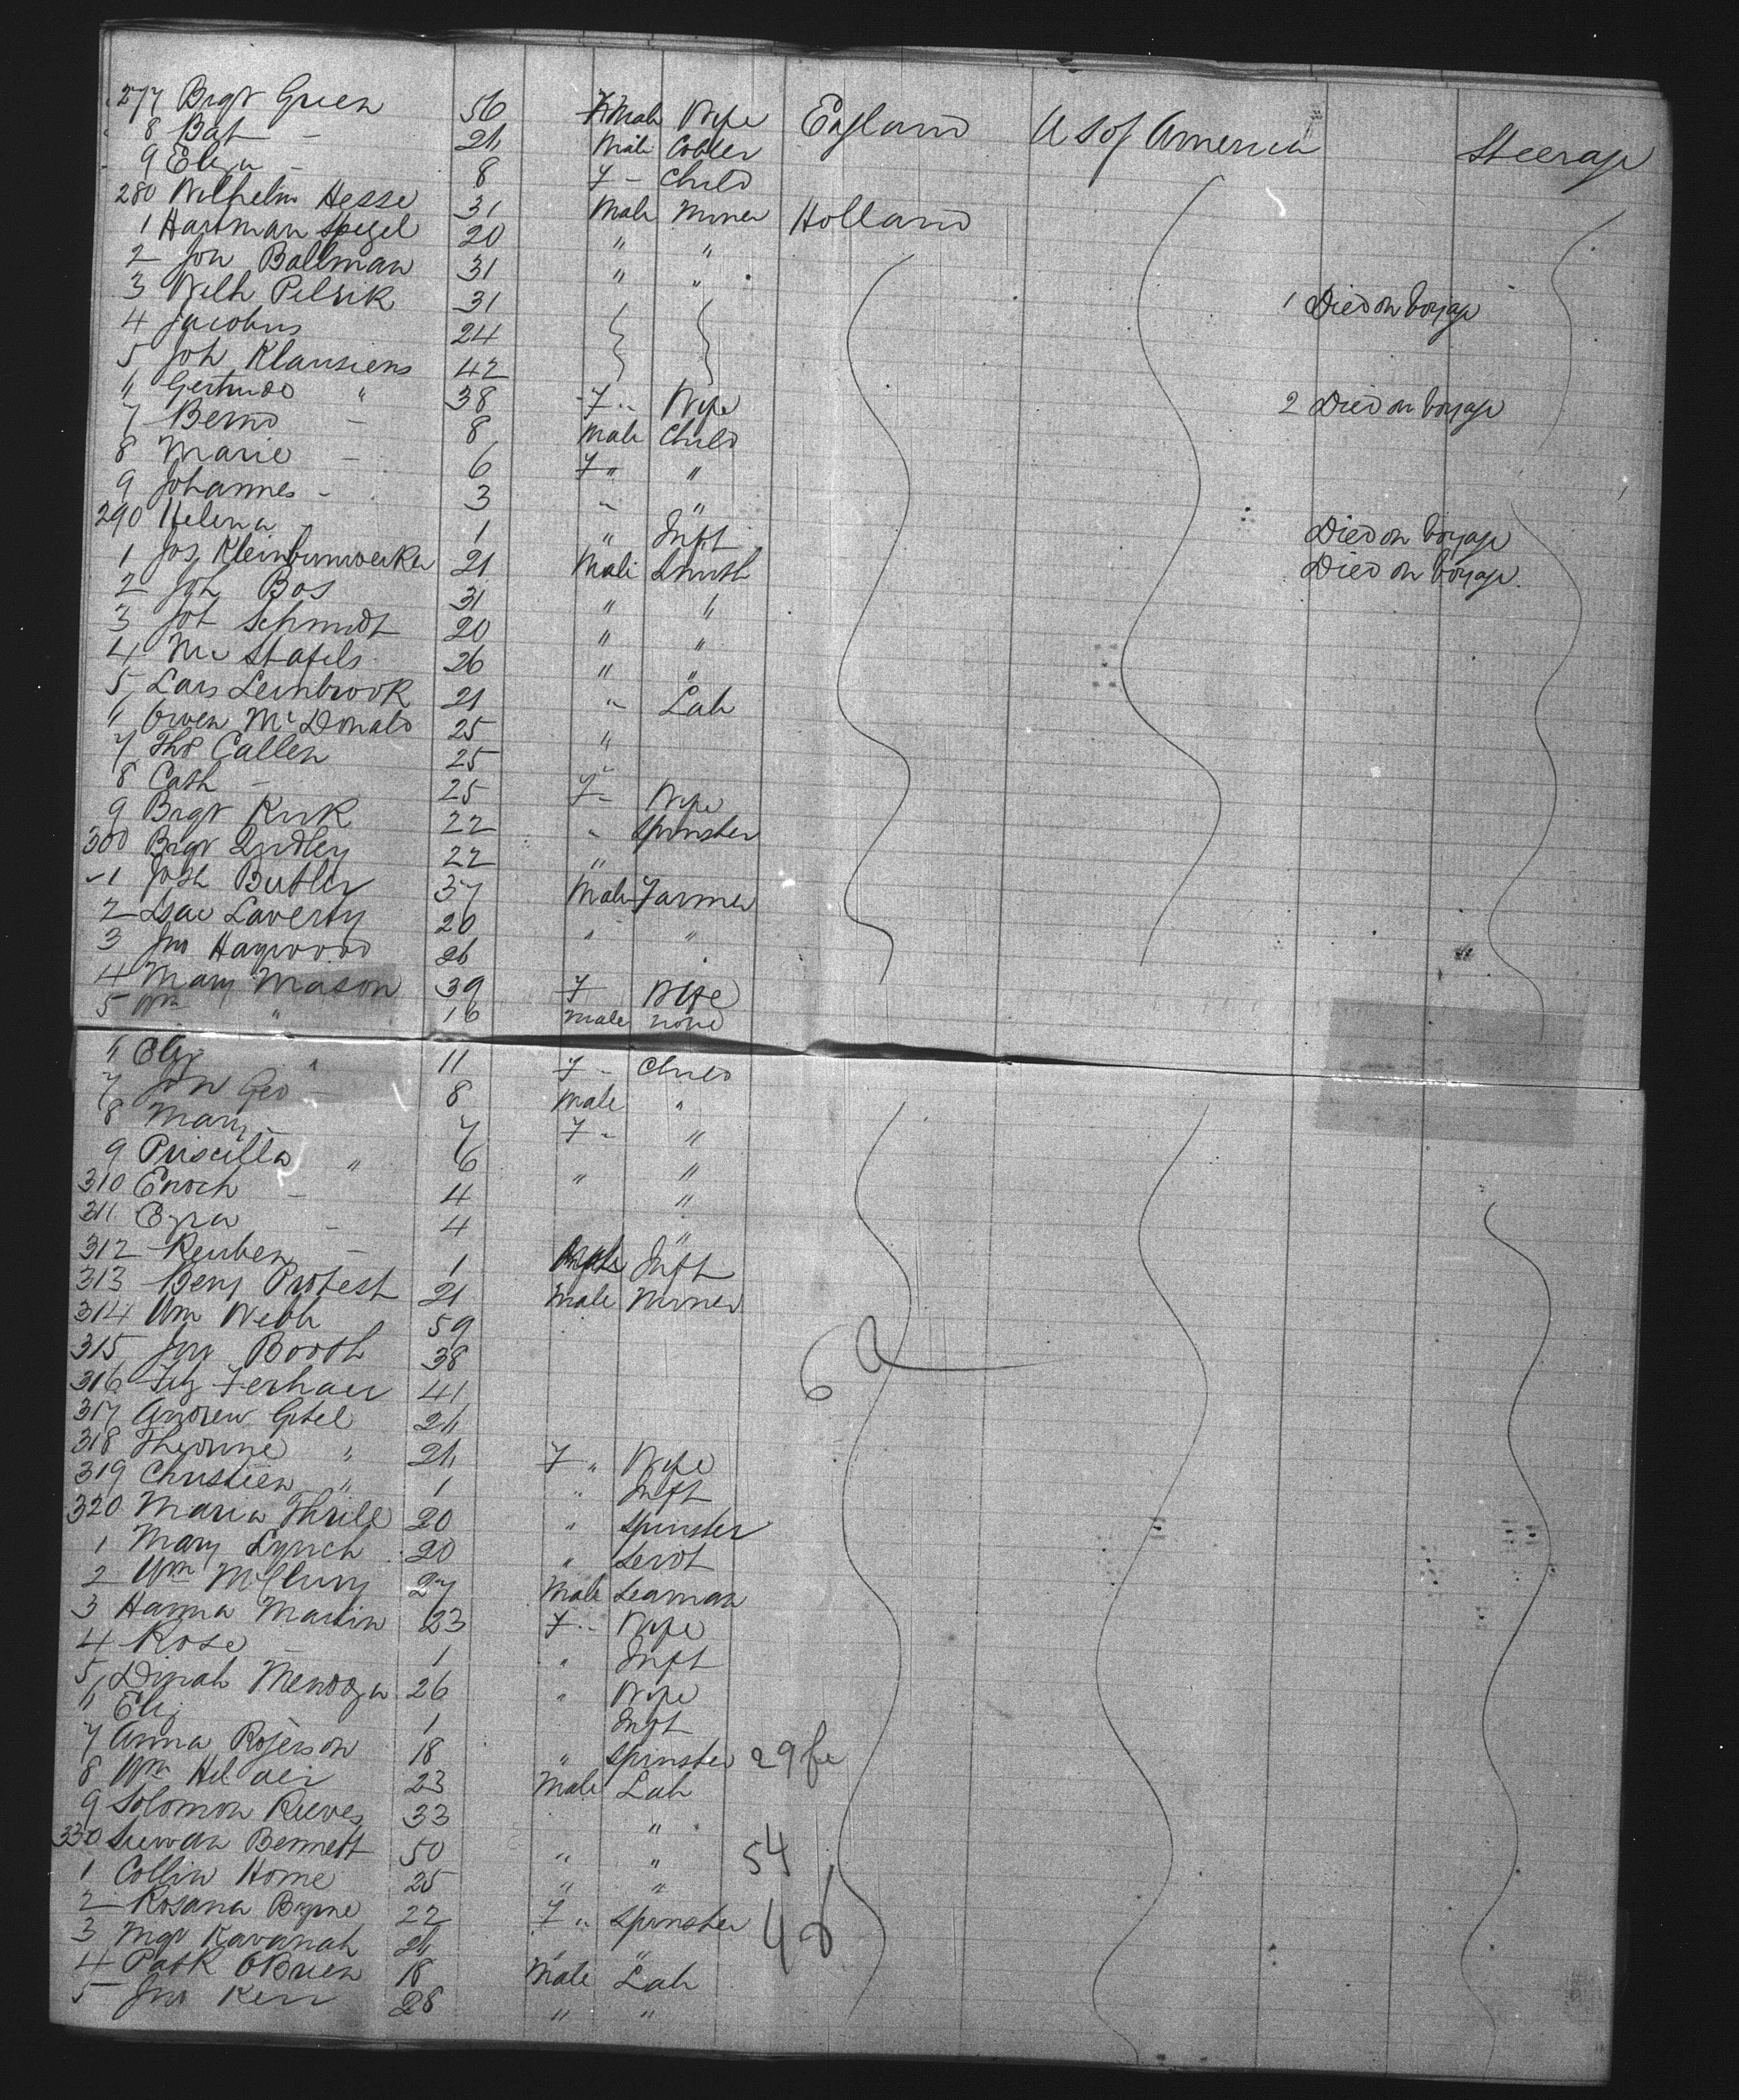 277 Brgt Green 56 F Male Wife England U S of America Steerage
8 Bat - 21 Male Cobler
9 Eliza - 8 F - Child
280 Wilhelm Hesse 31 Male Miner Holland
1 Hartman Spegel 20 " "
2 Joh Bollman 31 " "
3 Wilh Pelsik 31 1 Died on Voyage
4 Jacobus 24
5 Joh Klausiens 42
6 Gertrude " 38 F " Wife 2 Died on Voyage
7 Bernd - 8 Male Child
8 Marie - 6 F " "
9 Johannes - 3 " "
290 Helena - 1 " Inft Died on Voyage
1 Jos Kleinbunwerker 21 Male Smith Died on Voyage.
2 Joh Bos 31 " "
3 Joh Schmidt 20 " "
4 Mc Stafels 26 " "
5 Lars Leinbrook 21 " Lab
6 Owen McDonald 25 "
7 Thos Callen 25 "
8 Cath - 25 F - Wife
9 Brgt Kirk 22 " Spinster
300 Brgt Lindley 22 "
1 Josh Butler 37 Male Farmer
2 Isac Laverty 20 " "
3 Jno Haywood 26 "
4 Mary Mason 39 F Wife
5 Wm " 16 Male none
6 Eliz " 11 F - Child
7 Geo - 8 Male "
8 Mary - 7 F - "
9 Priscilla " 6 " "
310 Enoch - 4 "
311 Ezra - 4 "
312 Reuben - 1 Male Inft
313 Benj Protest 21 Male Miner
314 Wm Webb 59
315 Jno Booth 38
316 Fitz Ferhaer 41
317 Andrew Getel 24
318 Theorine " 24 F " Wife
319 Christien " 1 " Inft
320 Maria Thrile 20 " Spinster
1 Mary Lynch 20 " Servt
2 Wm McClury 27 Male Seaman
3 Hanna Martin 23 F " Wife
4 Rose - 1 " Inft
5 Dinah Mendoza 26 " Wife
6 Eliz 1 Inft
7 Anna Rogerson 18 " Spinster 29 fe
8 Wm 23 Male Lab
9 Solomon Reeves 33 "
330 Bennett 50 " " 54
1 Collin Home 25 " "
2 Rosana Byrne 22 F " Spinster
3 Mgt Kavanah 24 " "
4 Patk OBrien 18 Male Lab
5 Jno Kerr 28 " "